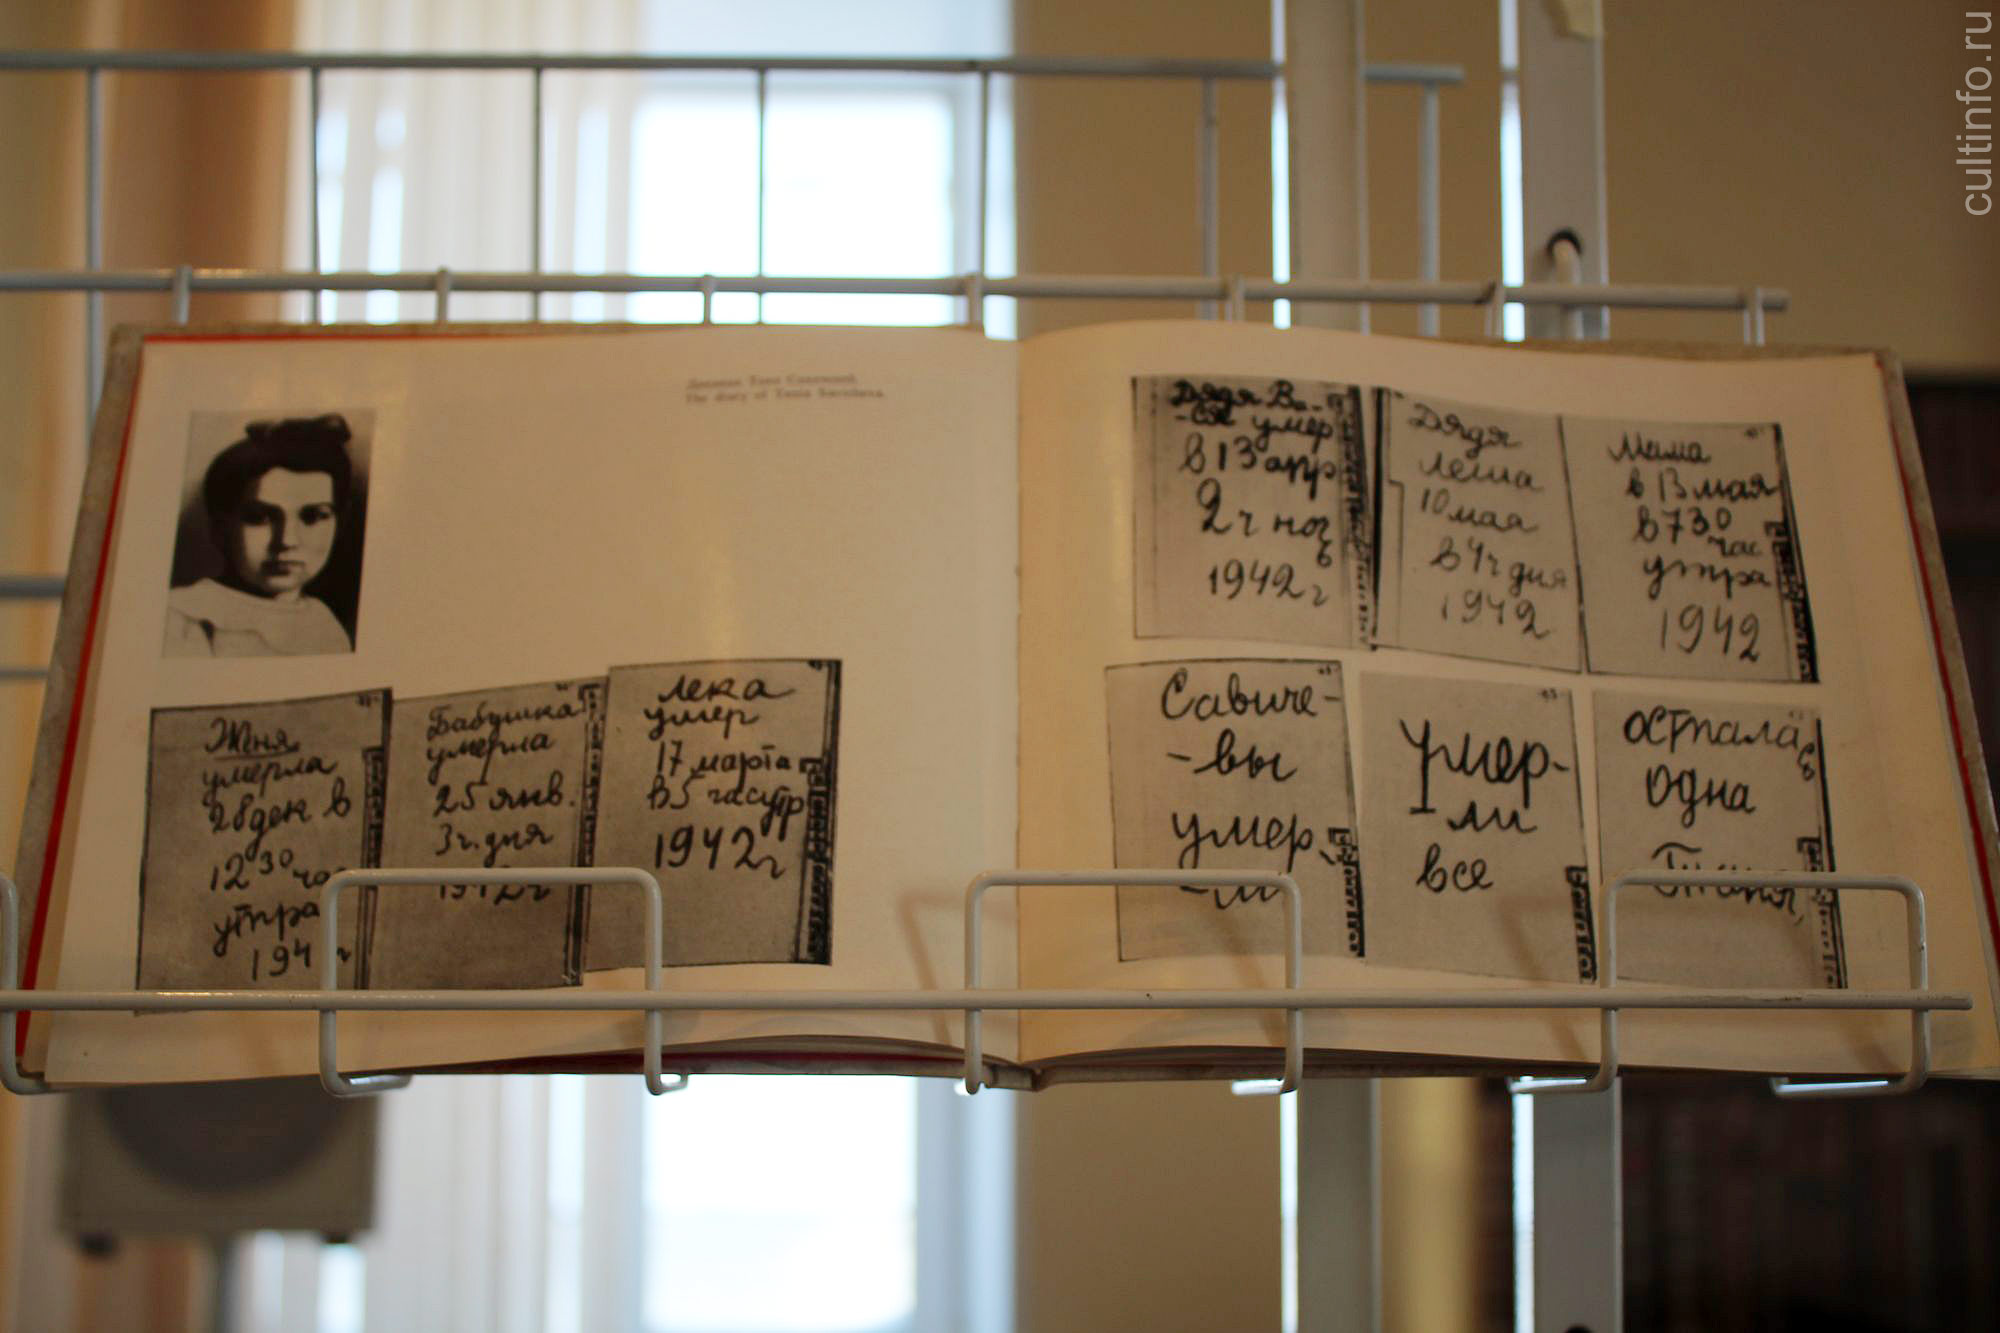 Дневник Тани Савичевой.
The diary of Tania Savicheva.
Женя
умерла
28 дек в
12 30 час
утра
194 г
Бабушка
умерла
25 янв.
3 ч. дня
1942 г
Лека
умер
17 марта
в 5 час утр
1942 г
Дядя Ва-
-ся умер
в 13 апр
2 ч ноч
ь
1942 г
Дядя
Леша
10 мая
в 4 ч дня
1942
Мама
в 13 мая
в 7 30
час
утра
1942
Савиче-
-вы
умер
-ли
Умер-
ли
все
Осталась
одна
Таня,
cultinfo.ru